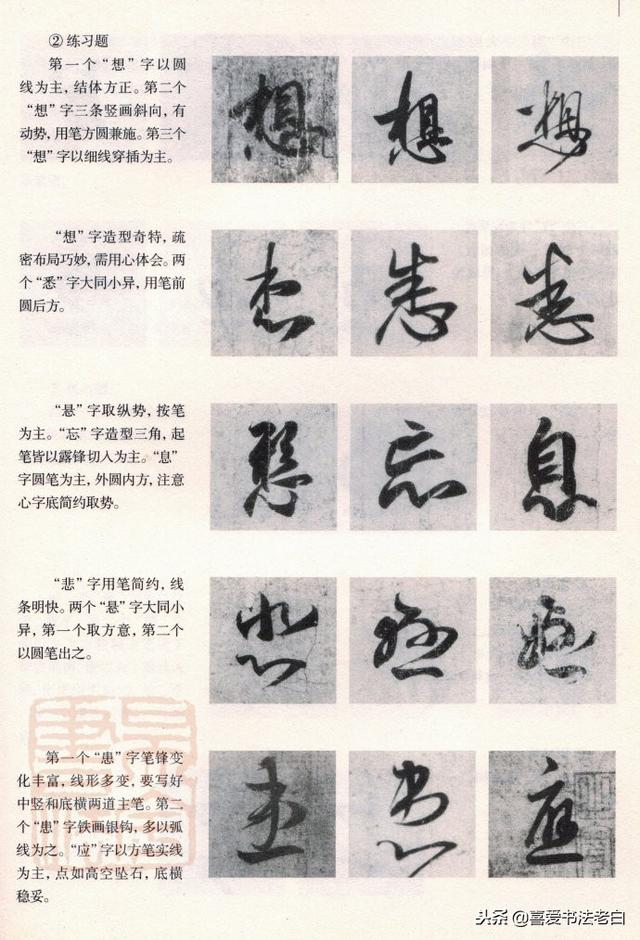 ②练习题
第一个“想”字以圆
线为主，结体方正。第二个
“想”字三条竖画斜向，有
动势，用笔方圆兼施。第三个
“想”字以细线穿插为主。
想 想 想
“想”字造型奇特，疏
密布局巧妙，需用心体会。两
个“悉”字大同小异，用笔前
圆后方。
想 悉 悉
“悬”字取纵势，按笔
为主。“忘”字造型三角，起
笔皆以露锋切入为主。“息”
字圆笔为主，外圆内方，注意
心字底简约取势。
悬 忘 息
“悲”字用笔简约，线
条明快。两个“悬”字大同小
异，第一个取方意，第二个
以圆笔出之。
悲 悬 悬
第一个“患”字笔锋变
化丰富，线形多变，要写好
中竖和底横两道主笔。第二
个“患”字铁画银钩，多以弧
线为之。“应”字以方笔实线
为主，点如高空坠石，底横
稳妥。
患 患 应
头条@喜爱书法老白